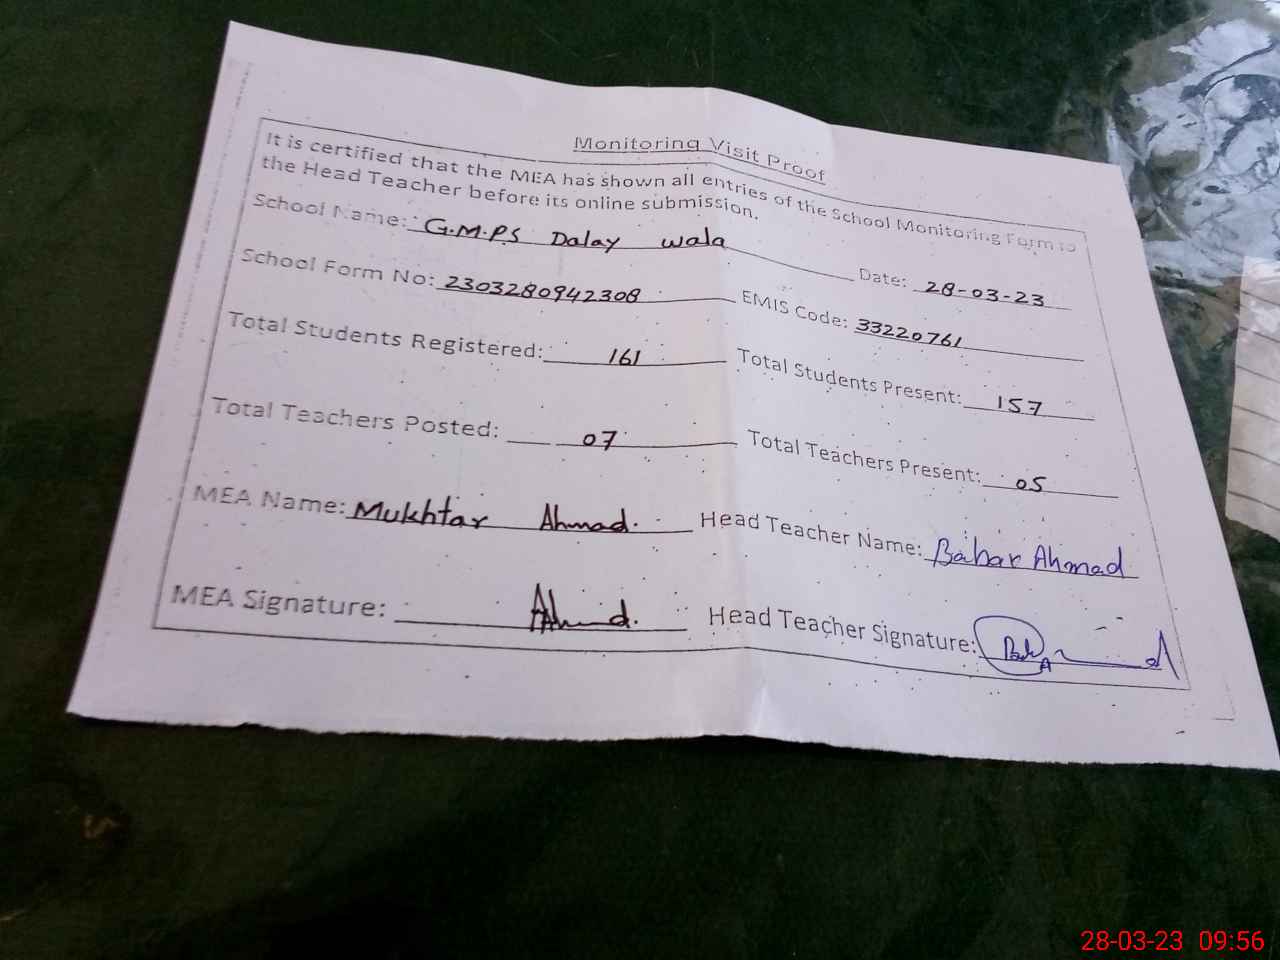 Monitoring Visit Proof
It is certified that the MEA has shown all entries of the School Monitoring Form to
the Head Teacher before its online submission.
School Name: G.M.P.S Dalay wala Date: 28-03-23
School Form No: 2303280942308 EMIS Code: 33220761
Total Students Registered: 161 Total Students Present: 157
Total Teachers Posted: 07 Total Teachers Present: 05
MEA Name: Mukhtar Ahmad. Head Teacher Name: Babar Ahmad
MEA Signature: Head Teacher Signature:
28-03-23 09:56